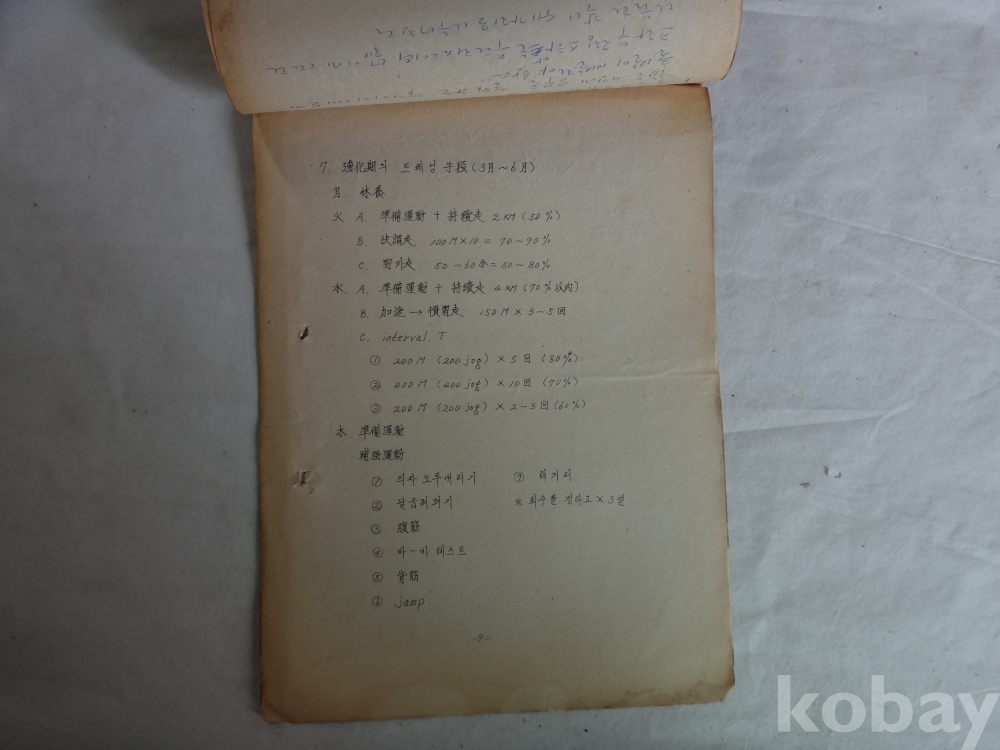 7. 强化期의 트레닝 手段(3月~6月)
月. 休養
火. A. 準備運動 + 持續走 2KM (50%)
B. 快調走 100M×10 = 70~90%
C. 野外走 50~60分 = 50~80%
水. A. 準備運動 + 持續走 4KM (70%以內)
B. 加速 → 慣習走 150M × 3~5回
C. interval. T
① 200M (200 jog) × 5回 (80%)
② 400M (400 jog) × 10回 (70%)
③ 200M (200 jog) × 2~3回 (60%)
木 準備運動
補強運動
① 의자 오루내리기 ⑦ 턱거리
② 팔굽혀펴기 ※ 회수를 정하고 × 3셑
③ 腹筋
④ 바-비 테스트
⑤ 背筋
⑥ jamp
-9-
kobay